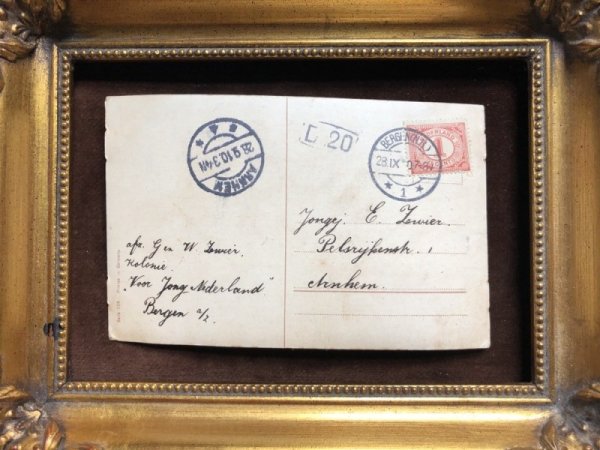 ARNHEM
28.9.10.3-4N
* 4 8 *
L 20
BERGEN(N.H.)
28.IX 10.7-8V
* 1 *
1
afz. G en W Zwier.
Kolonie
"Voor Jong Nederland"
Bergen a/z.
Jongej. E. Zwier.
Pelsrijkenstr. 1
Arnhem.